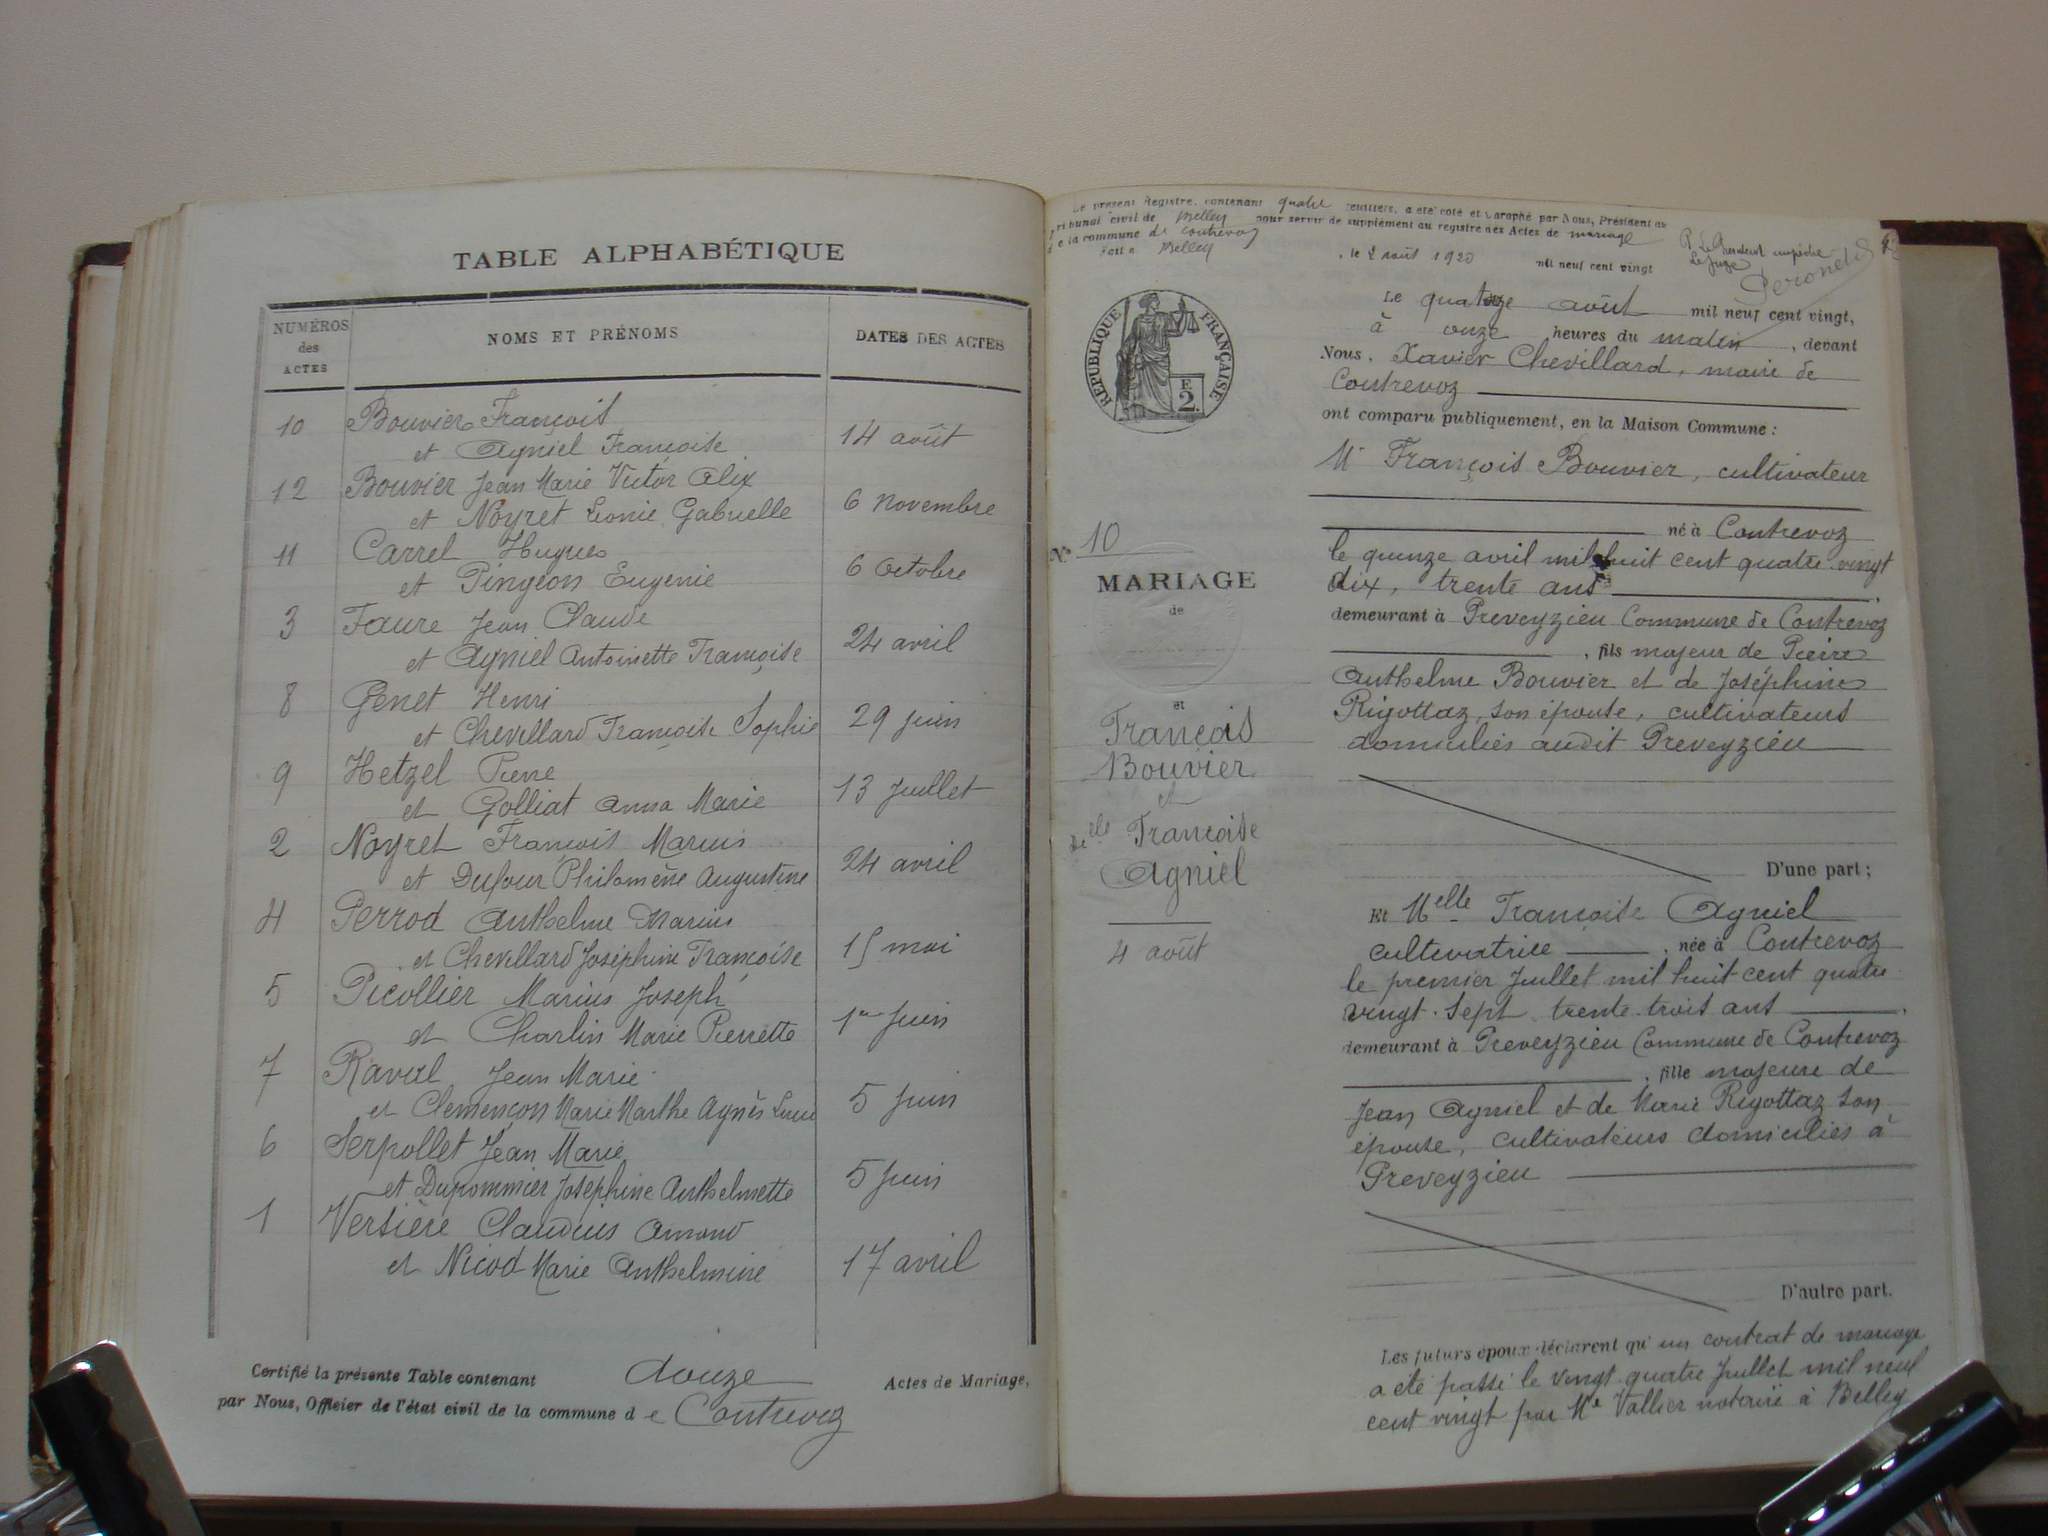 TABLE ALPHABÉTIQUE
NUMÉROS
des
ACTES
NOMS ET PRÉNOMS
DATES DES ACTES
10 Bouvier François
et Agniel Françoise 14 août
12 Bouvier Jean Marie Victor Alix
et Noyret Léonie Gabrielle 6 Novembre
11 Carrel Hugues
et Pingeon Eugenie 6 Octobre
3 Faure Jean Claude
et Agniel Antoinette Françoise 24 avril
8 Genet Henri
et Chevillard Françoise Sophie 29 juin
9 Hetzel Pierre
et Golliat Anna Marie 13 Juillet
2 Noyret François Marius
et Dufour Philomène Augustine 24 avril
4 Perrod Anthelme Marius
et Chevillard Joséphine Françoise 15 mai
5 Picollier Marius Joseph
et Charlin Marie Pierrette 1er Juin
7 Raval Jean Marie
et Clemençon Marie Marthe Agnès 5 Juin
6 Serpollet Jean Marie
et Dupommier Joséphine Anthelmette 5 Juin
1 Versière Claudius Amand
et Nicod Marie Anthelmine 17 avril
Certifié la présente Table contenant douze Actes de Mariage,
par Nous, Officier de l'état civil de la commune d e Contrevoz
Le présent Registre, contenant quatre feuillets, a été coté et paraphé par Nous, Président du
Tribunal civil de Belley pour servir de supplément au registre des Actes de mariage
de la commune de Contrevoz
Fait à Belley, le 2 août 1920 mil neuf cent vingt
P. Le Président empêché
Le Juge
RÉPUBLIQUE FRANÇAISE
E
2.
Le quatorze août mil neuf cent vingt,
à onze heures du matin, devant
Nous, Xavier Chevillard, maire de
Contrevoz
ont comparu publiquement, en la Maison Commune :
Mr François Bouvier, cultivateur
né à Contrevoz
le quinze avril mil huit cent quatre vingt
dix, trente ans,
demeurant à Preveyzieu Commune de Contrevoz
, fils majeur de Pierre
Anthelme Bouvier et de Joséphine
Rigottaz, son épouse, cultivateurs
domiciliés audit Preveyzieu
D'une part ;
Nº 10
MARIAGE
de
et
François
Bouvier
et
de elle Françoise
Agniel
4 août
Et Melle Françoise Agniel
cultivatrice , née à Contrevoz
le premier Juillet mil huit cent quatre
vingt-sept trente-trois ans,
demeurant à Preveyzieu Commune de Contrevoz
, fille majeure de
Jean Agniel et de Marie Rigottaz son
épouse, cultivateurs domiciliés à
Preveyzieu
D'autre part.
Les futurs époux déclarent qu'un contrat de mariage
a été passé le vingt quatre Juillet mil neuf
cent vingt par Me Vallier notaire à Belley